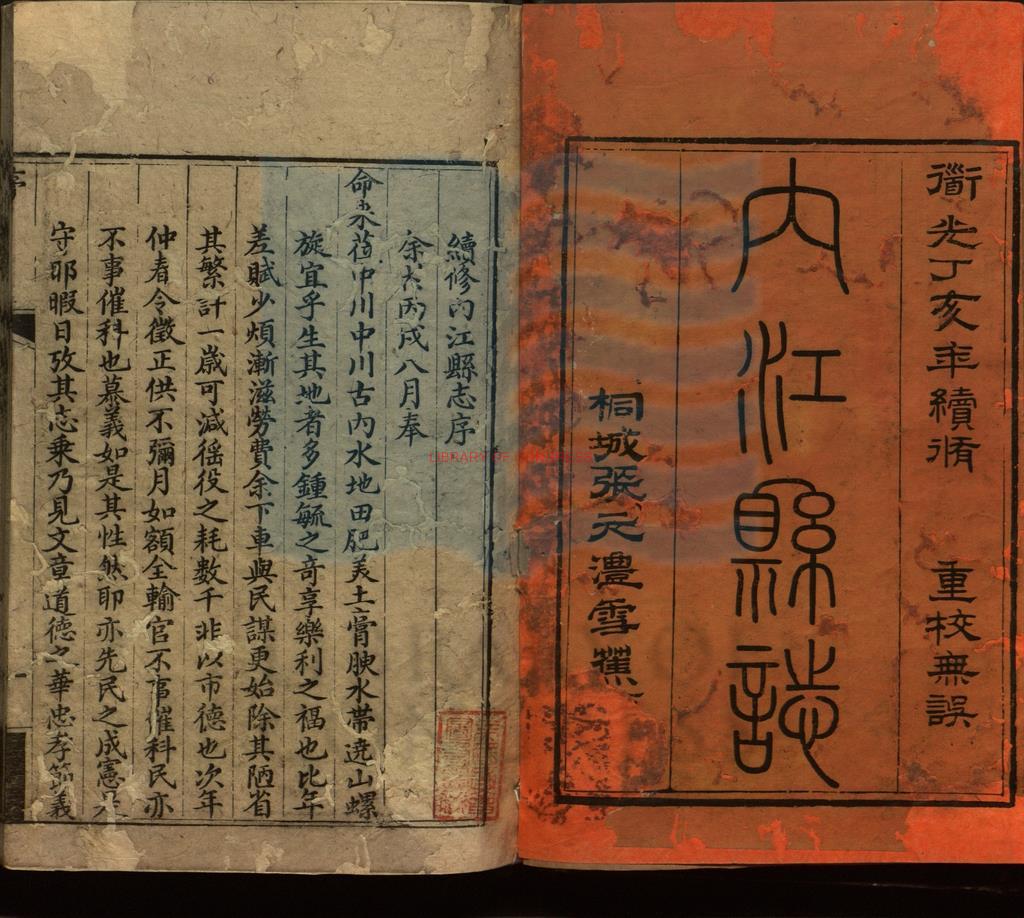 衜光丁亥年續脩　重校無誤
內江縣誌
桐城張元澧雪蕉
續修內江縣志序
余於丙戌八月奉
命來蒞中川中川古內水地田肥美土膏腴水帶遶山螺
旋宜乎生其地者多鍾毓之奇享樂利之福也比年
差賦少煩漸滋勞費余下車與民謀更始除其陋省
其繁計一歲可減徭役之耗數千非以市德也次年
仲春令徵正供不彌月如額全輸官不事催科民亦
不事催科也慕義如是其性然耶亦先民之成憲是
守耶暇日攷其志乘乃見文章道德之華忠孝節義
序
LIBRARY OF CONGRESS